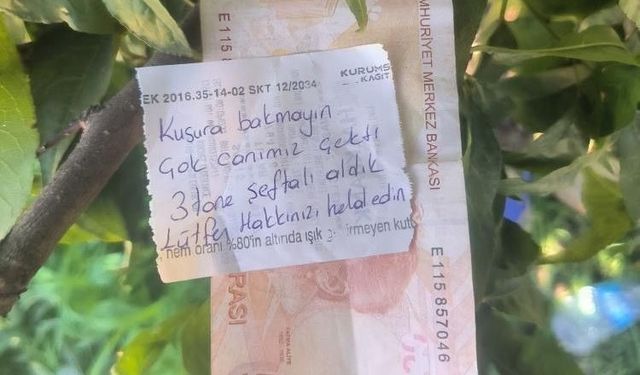 EK 2016.35-14-02 SKT 12/2034
KURUMS
KAGIT
Kusura bakmayın
Çok canımız çekti
3 tane şeftali aldık
Lütfen Hakkınızı helal edin
nem oranı %80'in altında ışık
irmeyen kutu
E 115 8
MHURİYET MERKEZ BANKASI
E 115 857046
RASI
FATMA ALİYE